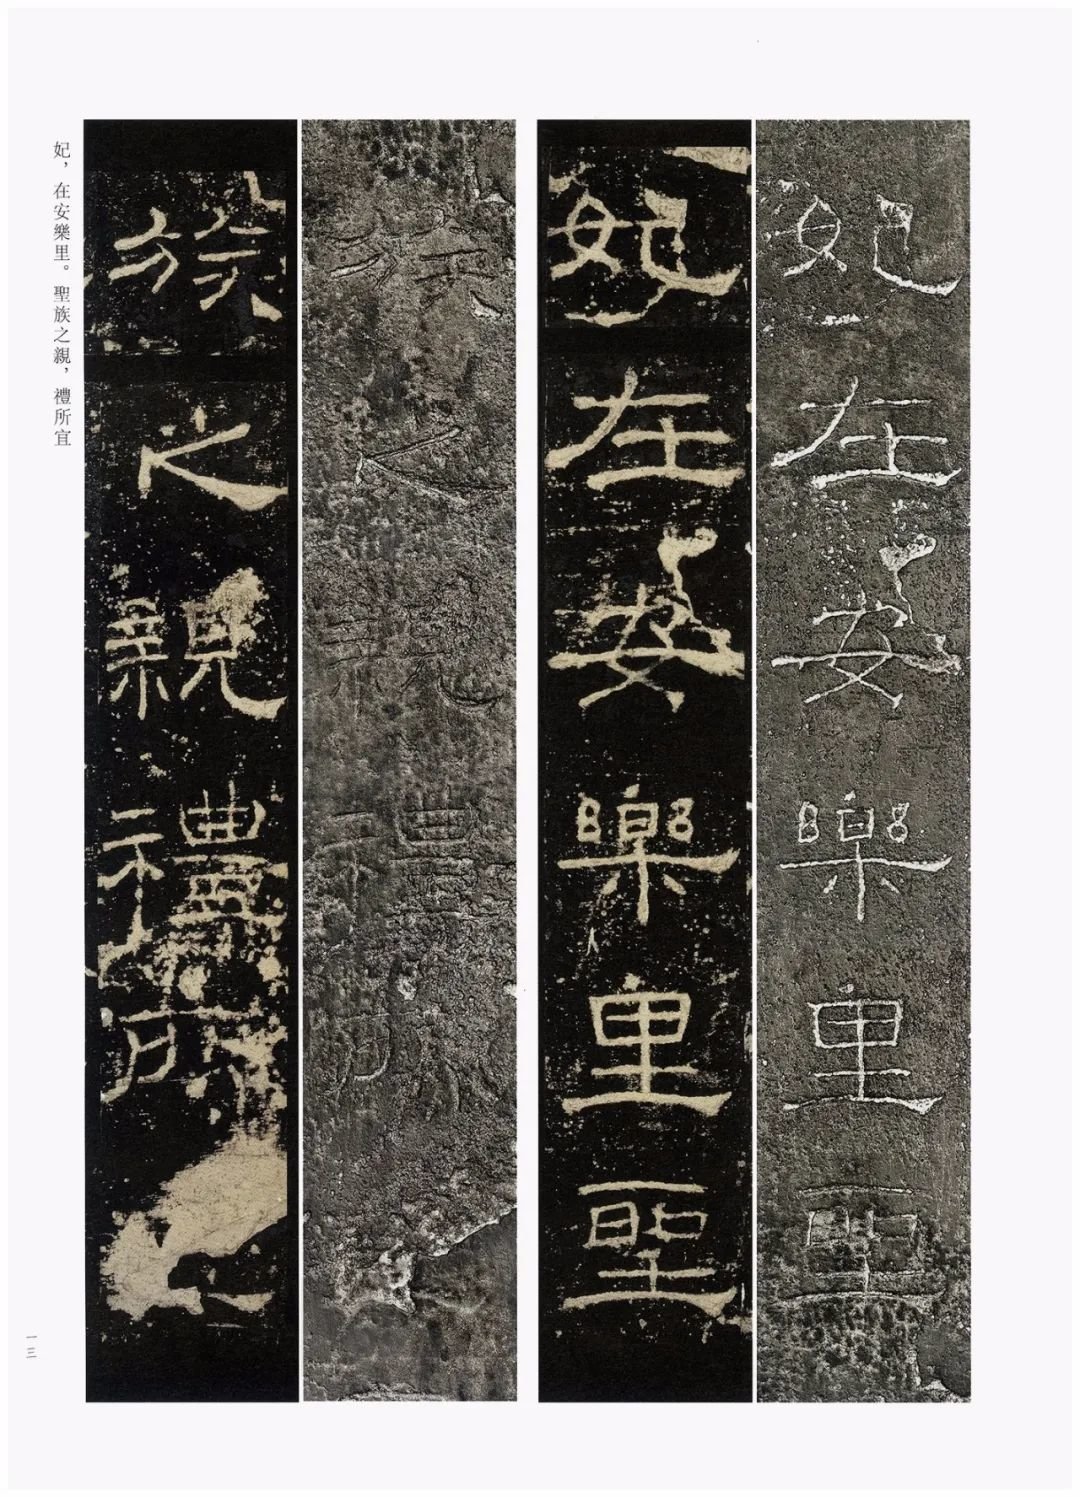 妃在安樂里聖
妃在安樂里聖
族之親禮所
族之親禮所
妃，在安樂里。聖族之親，禮所宜
一三